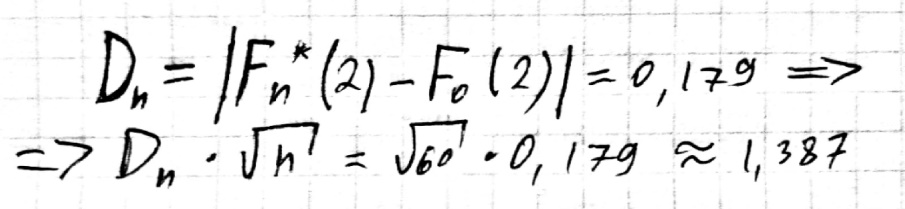 Dₙ = |Fₙ*(2) - F₀(2)| = 0,179 =>
=> Dₙ · √n = √60 · 0,179 ≈ 1,387